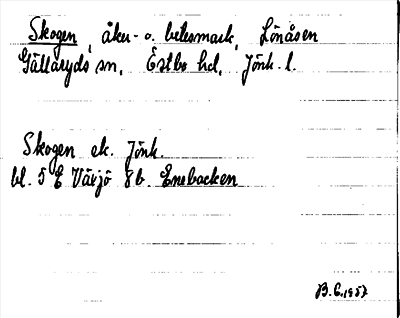 Skogen, åker- o. betesmark, Lönåsen
Gällaryds sn, Östbo hd, Jönk. l.
Skogen ek. Jönk.
bl. 5 E Växjö 8b. Enebacken
B.E. 1957